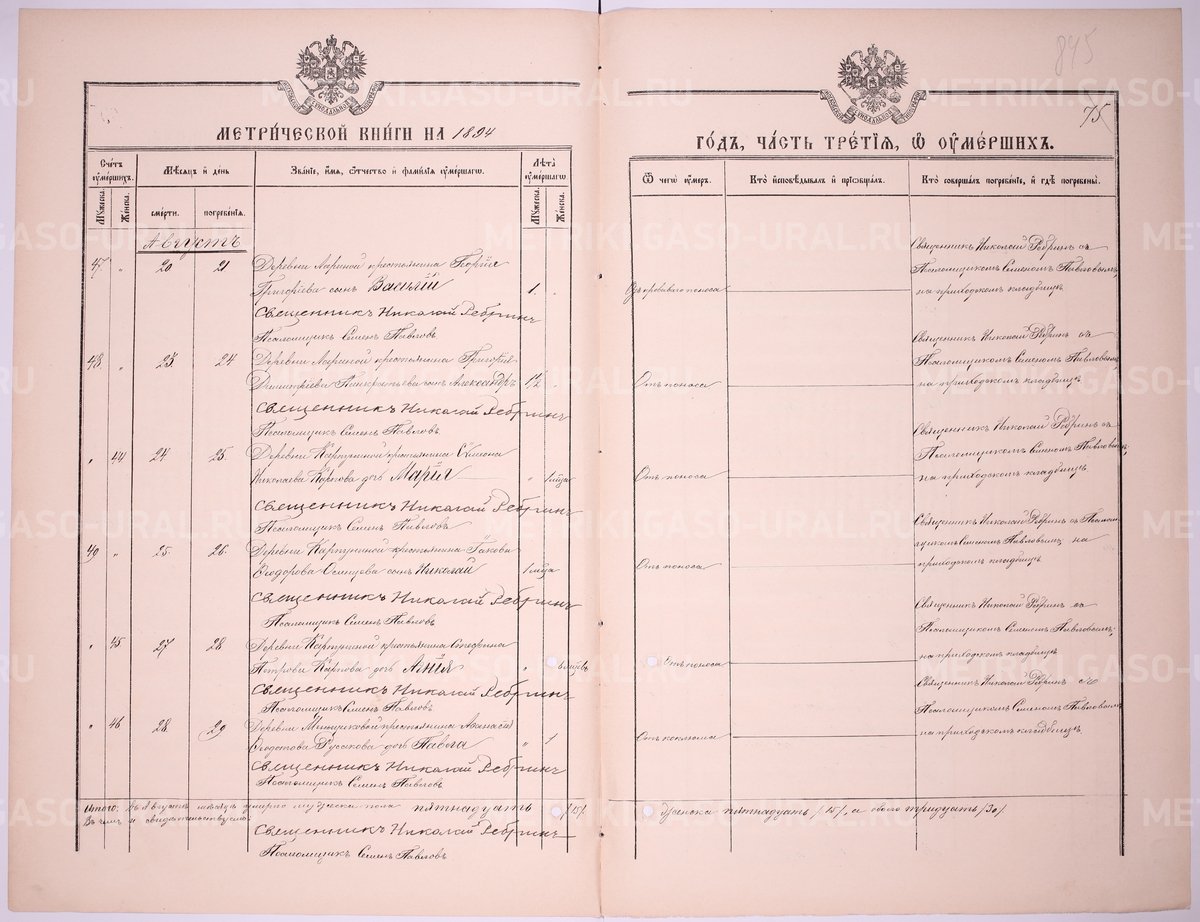 845
75
МЕТРИЧЕСКОЙ КНИГИ НА 1894
ГОДЪ, ЧАСТЬ ТРЕТІЯ, Ѡ ОУМЕРШИХЪ.
Счетъ оумершихъ.
Мѣсяцъ и день
Званіе, имя, ѿчество и фамилія оумершаго.
Лѣта оумершаго
Мужеска.
Женска.
смерти.
погребенія.
Мужеска.
Женска.
Ѿ чего оумеръ.
Кто исповѣдывалъ и пріобщалъ.
Кто совершалъ погребеніе, и гдѣ погребены.
Августъ
47 " 20 21 Деревни крестьянина Георгія
Григоріева сынъ Василій 1.
Священникъ Николай Ребринъ
Псаломщикъ Семенъ Павловъ
Отъ кроваваго поноса
Священникъ Николай Ребринъ съ
Псаломщикомъ Семеномъ Павловымъ
на приходскомъ кладбищѣ
48. " 23. 24 Деревни крестьянина Григорія
Димитріева Панкратьева сынъ Александръ 1½
Священникъ Николай Ребринъ
Псаломщикъ Семенъ Павловъ.
Отъ поноса
Священникъ Николай Ребринъ съ
Псаломщикомъ Семеномъ Павловымъ
на приходскомъ кладбищѣ
" 44 24 25. Деревни крестьянина Симеона
Николаева Карпова дочь Марія " 1 мѣсца
Священникъ Николай Ребринъ
Псаломщикъ Семенъ Павловъ
Отъ поноса
Священникъ Николай Ребринъ съ
Псаломщикомъ Семеномъ Павловымъ,
на приходскомъ кладбищѣ
49 " 25. 26. Деревни крестьянина Іакова
Ѳеодорова сынъ Николай 1 мѣсца
Священникъ Николай Ребринъ
Псаломщикъ Семенъ Павловъ
Отъ поноса
Священникъ Николай Ребринъ съ Псалом
щикомъ Семеномъ Павловымъ, на
приходскомъ кладбищѣ
" 45 27 28. Деревни крестьянина Стефана
Петрова Карпова дочь "
Священникъ Николай Ребринъ
Псаломщикъ Семенъ Павловъ
Отъ поноса
Священникъ Николай Ребринъ съ
Псаломщикомъ Семеномъ Павловымъ,
на приходскомъ кладбищѣ
" 46 28. 29 Деревни крестьянина Аѳанасія
Ѳеодотова Русакова дочь Павла " 1
Священникъ Николай Ребринъ
Псаломщикъ Семенъ Павловъ
Отъ коклюша
Священникъ Николай Ребринъ съ
Псаломщикомъ Семеномъ Павловымъ
на приходскомъ кладбищѣ
Итого: въ Августѣ мѣсяцѣ умерло мужеска пола пятнадцать /15/.
женска пятнадцать /15/, а обоего тридцать /30/.
Въ чемъ и свидѣтельствуемъ:
Священникъ Николай Ребринъ
Псаломщикъ Семенъ Павловъ
METRIKI.GASO-URAL.RU